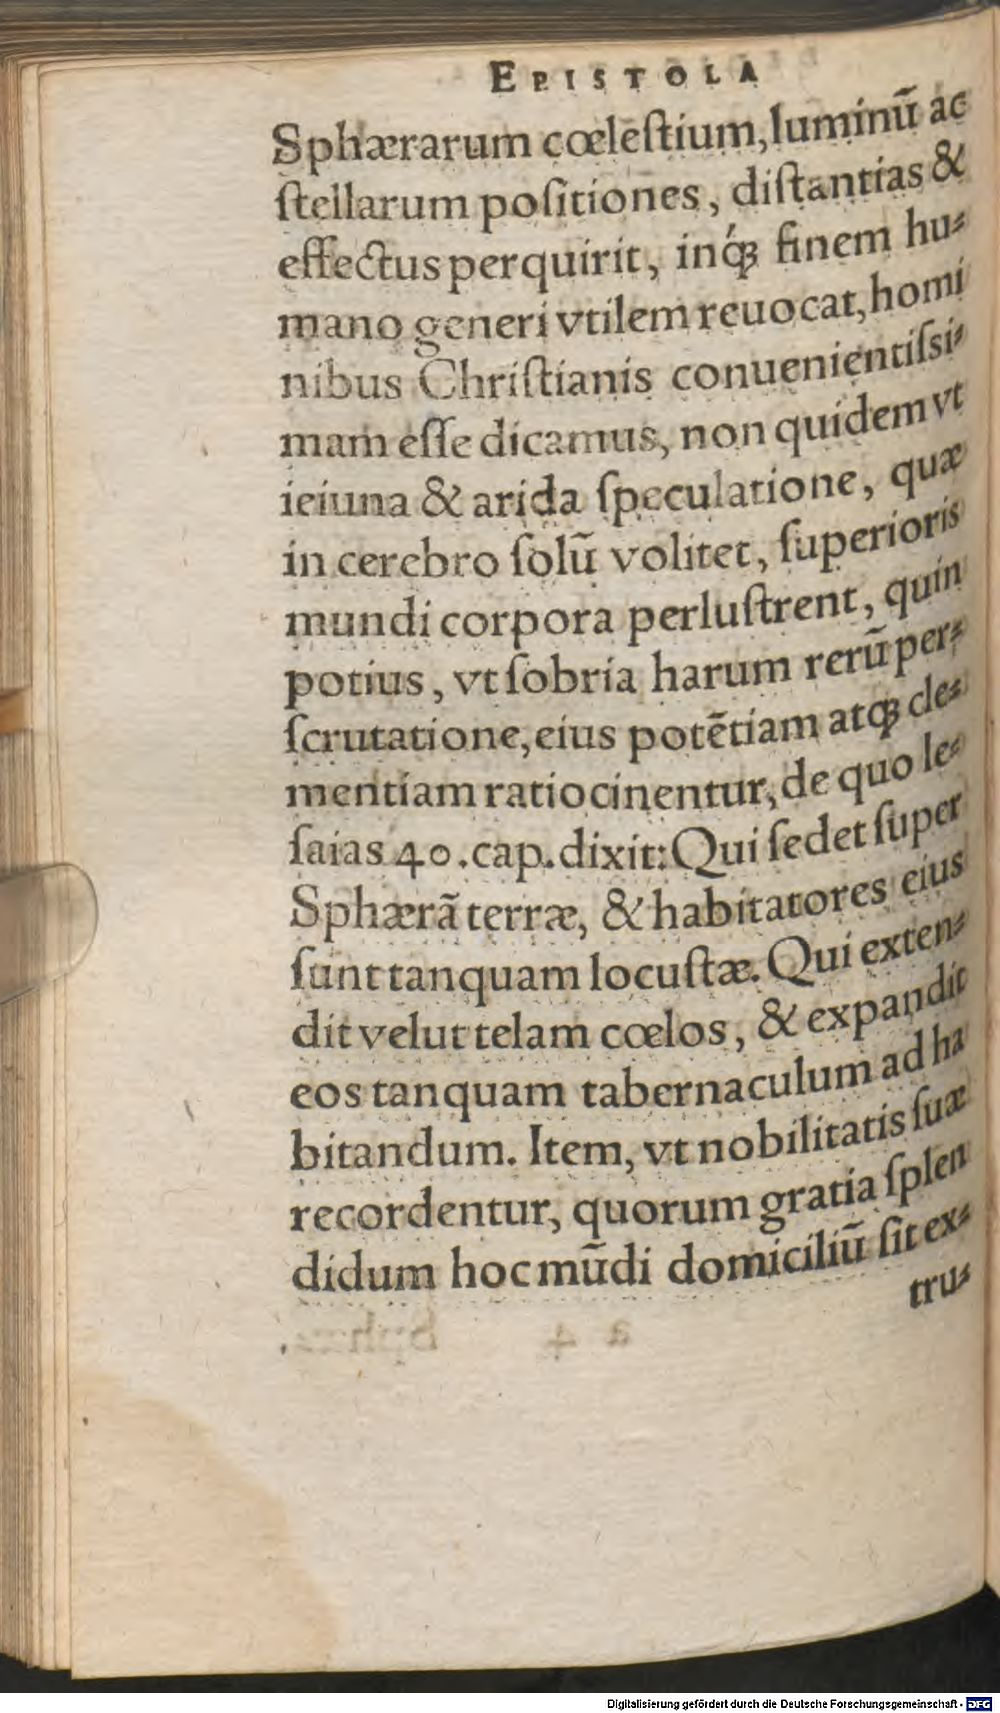 EPISTOLA
Sphærarum cœleſtium, luminũ ac
ſtellarum poſitiones, diſtantias &
effectus perquirit, inq́ꝫ finem hu⸗
mano generi vtilem reuocat, homi
nibus Chriſtianis conuenientiſsi⸗
mam eſſe dicamus, non quidem vt
ieiuna & arida ſpeculatione, quæ
in cerebro ſolũ volitet, ſuperioris
mundi corpora perluſtrent, quin
potius, vt ſobria harum rerũ per⸗
ſcrutatione, eius potẽtiam atqꝫ cle⸗
mentiam ratiocinentur, de quo Ie⸗
ſaias 40. cap. dixit: Qui ſedet ſuper
Sphærã terræ, & habitatores eius
ſunt tanquam locuſtæ. Qui exten⸗
dit velut telam cœlos, & expandit
eos tanquam tabernaculum ad ha
bitandum. Item, vt nobilitatis ſuæ
recordentur, quorum gratia ſplen
didum hoc mũdi domiciliũ ſit ex⸗
tru⸗
Digitalisierung gefördert durch die Deutsche Forschungsgemeinschaft - DFG